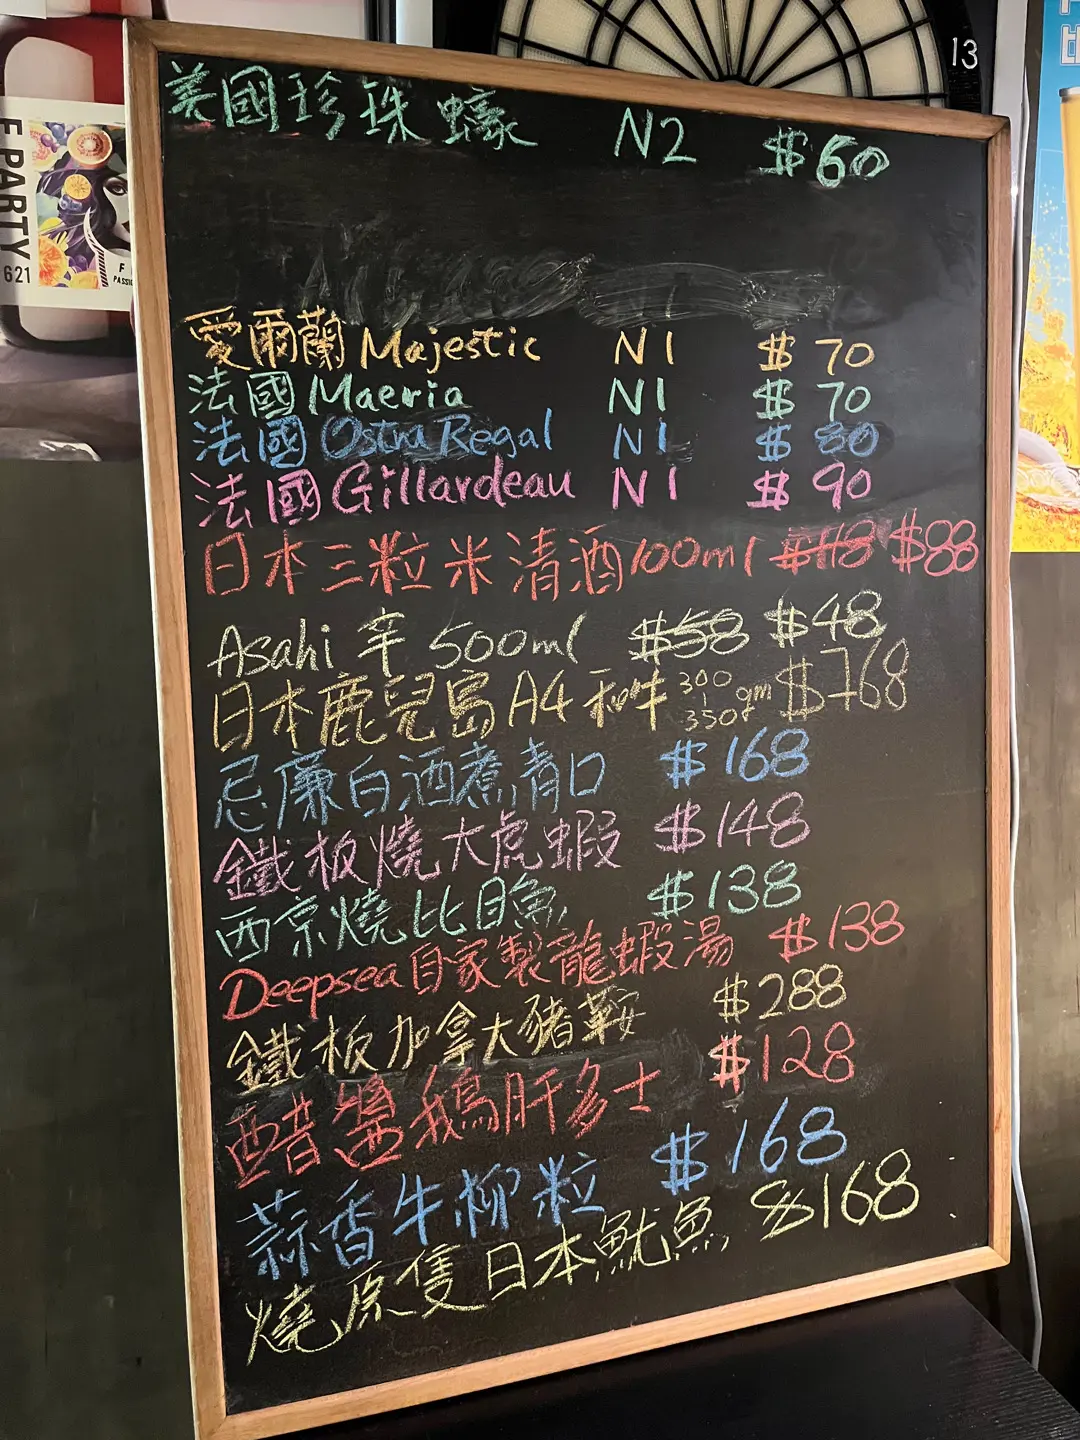 美國珍珠蠔 N2 $60
愛爾蘭 Majestic N1 $70
法國 Maeria N1 $70
法國 Ostra Regal N1 $80
法國 Gillardeau N1 $90
日本三粒米清酒100ml $118 $88
Asahi 辛 500ml $58 $48
日本鹿兒島A4和牛 300-350gm $768
忌廉白酒煮青口 $168
鐵板燒大虎蝦 $148
西京燒比目魚 $138
Deepsea自家製龍蝦湯 $138
鐵板加拿大豬鞍 $288
醋醬鵝肝多士 $128
蒜香牛柳粒 $168
燒原隻日本魷魚 $168
F PARTY
621
13